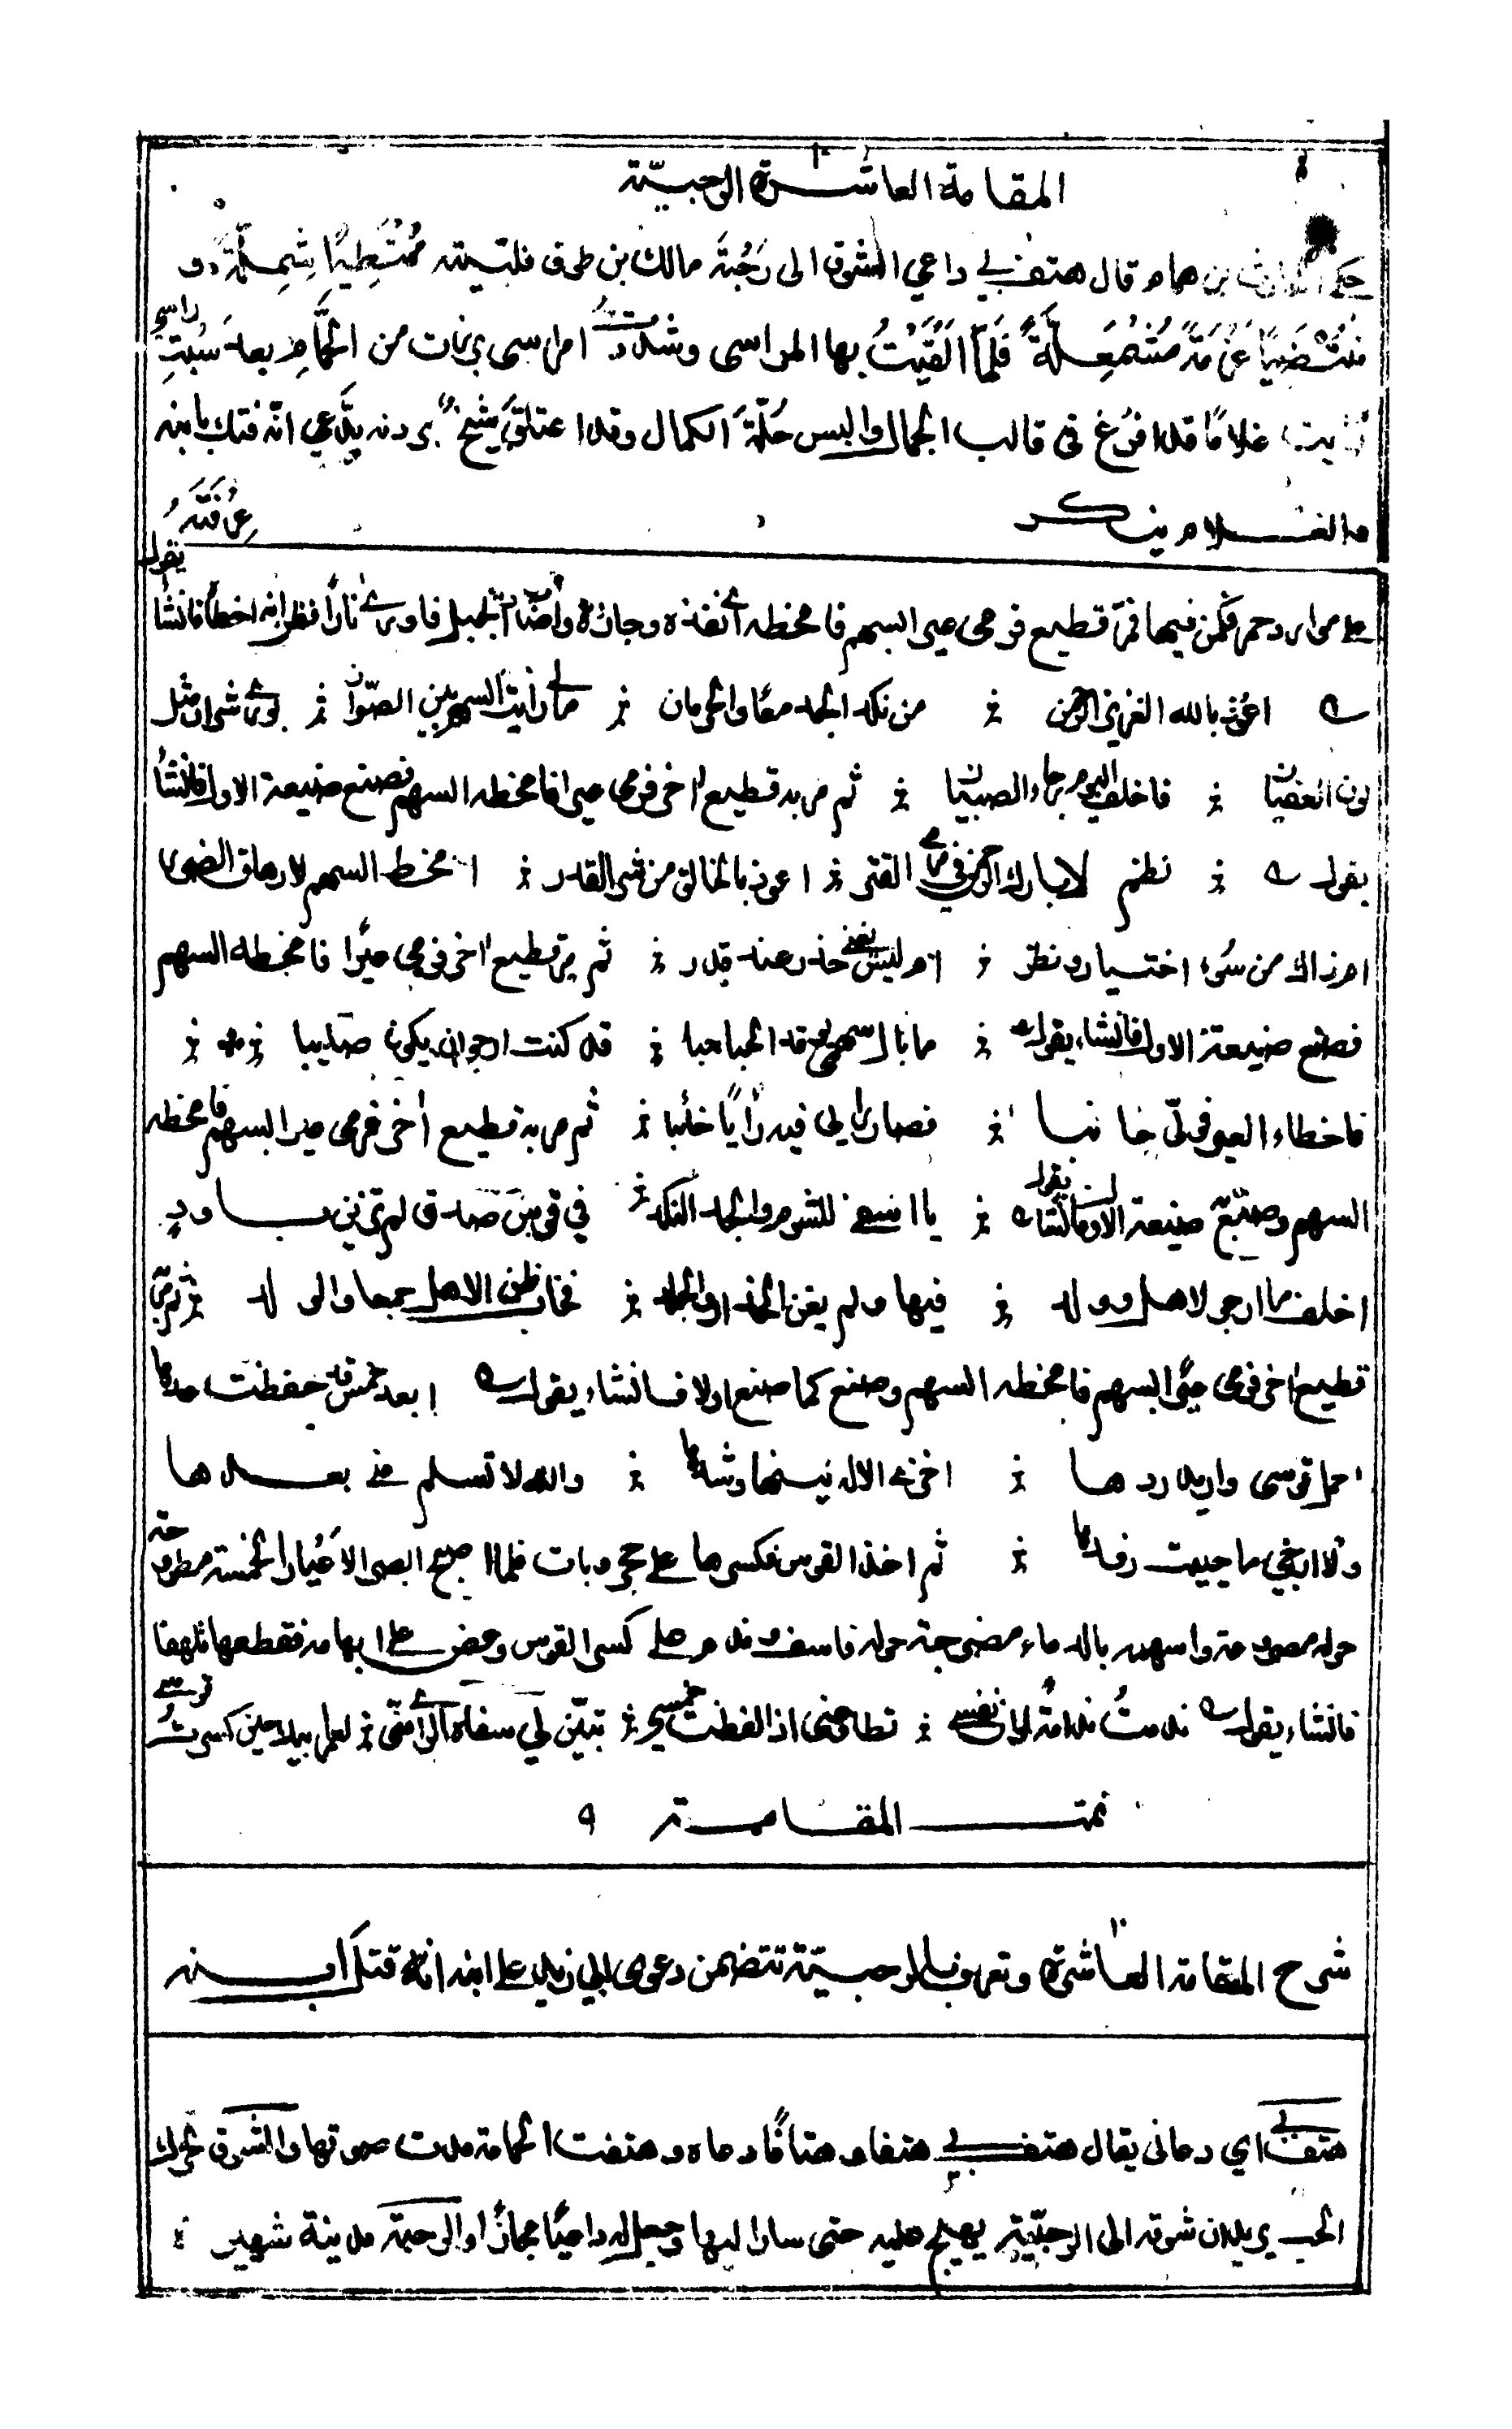 المقامة العاشرة الرحبيّة
حكى الحارث بن همام قال هتف بي داعي الشوق الى رَحْبَة مالك بن طوق فلبّيته مُمْتَطِيًا شِمِلّة و
مُنْتَضِيًا عَزْمَةً مُشْمَعِلّةً فَلَمّا اَلْقَيْتُ بها المراسى وشددتُ امراسى وبرزت من الحَمّام بعد سَبْتِ راسي
رأيت غلامًا قد افرغ في قالب الجمال والبس حُلّةَ الكمال وقد اعتلق شيخٌ بردنه يدّعي انّه فتك بابنه
والغلام ينكر عِرْفَتَهُ
يقول
على موارد حمر فكمن فيها فمرّ قطيع فرمى عيرا بسهم فامخطه اي نفذه وجازه واصاب الجبل فاورى نارًا فظن انه اخطأ فانشأ
اعوذ بالله العزيز الرحمن ؞ من نكد الجد معًا والحرمان ؞ مالي رأيت السهم بين الصّوان ؞ يورى شرارا مثل
لون العقيان ؞ فاخلف اليوم رجاء الصبيان ؞ ثم مر به قطيع اخر فرمى عيرا فامخطه السهم فصنع صنيعة الاول فانشأ
يقول ؞ نظم لا بارك الرحمن في رمي القتر ؞ اعوذ بالخالق من شر القدر ؞ امخط السهم لارهاق الضرر
ام ذاك من سوء اختيار ونظر ؞ ام ليس يغني حذر عند قدر ؞ ثم مر قطيع اخر فرمى عيرًا فامخطه السهم
فصنع صنيعة الاول فانشاء يقول ؞ ما بال سهمي يوقد الحباحبا ؞ قد كنت ارجو ان يكون صايبا ؞
فاخطاء العير وولّى جانبا ؞ فصار رايي فيه رأيًا خائبا ؞ ثم مر به قطيع أخر فرمى عيرا بسهم فامخطه
السهم وصنع صنيعة الاول فانشاء يقول ؞ يا اسفي للشوم والجد النكد ؞ في قوس صدق لم تزين باود
اخلف ما ارجو لاهل وولد ؞ فيها ولم يغن الحذار والجلد ؞ فخاب ظن الاهل جمعا والولد ؞ ثم مر
قطيع اخر فرمى عيرًا بسهم فامخطه السهم وصنع كما صنع اولا فانشاء يقول ابعد خمس قد حفظت عدها
احمل قوسى واريد ردها ؞ اخزى الاله لينها وشدها ؞ والله لا تسلم مني بعدها
ولا ارجي ما حييت رفدها ؞ ثم اخذ القوس فكسرها على حجر وبات فلما اصبح ابصر الاعيار الخمسة مطروحة
حوله مصروعة واسهمه بالدماء مضرجة حوله فاسف وندم على كسر القوس وعض على ابهامه فقطعها تلهفا
فانشاء يقول ندمتُ ندامة لو ان نفسي ؞ تطاوعني اذا لقطعت خمسي ؞ تبيّن لي سفاه الراى منّي ؞ لعمر ابيك حين كسرتُ قوسي
تمت المقامة ٩
شرح المقامة العاشرة وتعرف بالرحبيّة تتضمن دعوى ابي زيد على ابنه انه قتل ابنه
هتف بي اي دعاني يقال هتف بي هتفا وهتافًا دعاه وهتفت الحمامة مدت صوتها والشوق تحرك
الحب يريد ان شوقه الى الرحبة يهيج عليه حتى سار اليها وجعل له داعيًا مجازًا والرحبة مدينة شهيرة